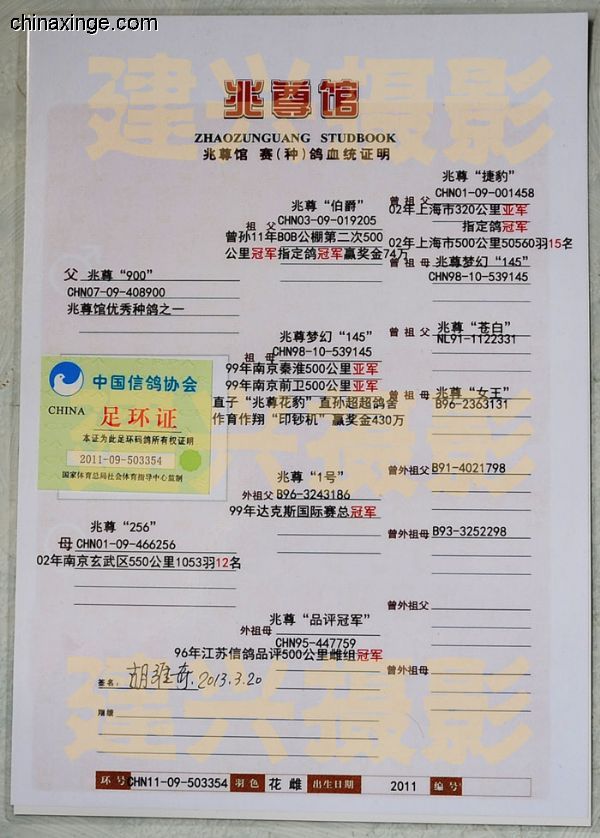 chinaxinge.com
建兴摄影
兆尊馆
ZHAOZUNGUANG STUDBOOK
兆尊馆 赛(种)鸽血统证明
兆尊“捷豹”
曾祖父 CHN01-09-001458
02年上海市320公里亚军
指定鸽冠军
02年上海市500公里50560羽15名
兆尊“伯爵”
祖父 CHN03-09-019205
曾孙11年BOB公棚第二次500
公里冠军指定鸽冠军赢奖金74万
曾祖母 兆尊梦幻“145”
CHN98-10-539145
父 兆尊“900”
CHN07-09-408900
兆尊馆优秀种鸽之一
曾祖父 兆尊“苍白”
NL91-1122331
兆尊梦幻“145”
祖母 CHN98-10-539145
99年南京秦淮500公里亚军
99年南京前卫500公里亚军
直子“兆尊花豹”直孙超超鸽舍
作育作翔“印钞机”赢奖金430万
曾祖母 兆尊“女王”
B96-2363131
中国信鸽协会
CHINA 足环证
本证为此足环码鸽所有权证明
2011-09-503354
国家体育总局社会体育指导中心监制
建兴摄影
曾外祖父 B91-4021798
兆尊“1号”
外祖父 B96-3243186
99年达克斯国际赛总冠军
曾外祖母 B93-3252298
兆尊“256”
母 CHN01-09-466256
02年南京玄武区550公里1053羽12名
曾外祖父
兆尊“品评冠军”
外祖母 CHN95-447759
96年江苏信鸽品评500公里雌组冠军
曾外祖母
建兴摄影
签名: 胡雅东 2013.3.20
环号 CHN11-09-503354 羽色 花 雌 出生日期 2011 编号